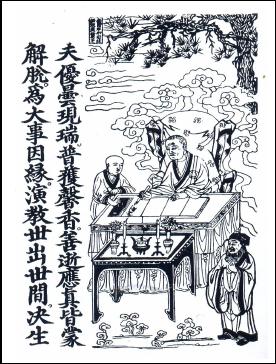 夫優曇現瑞。普獲馨香。善逝應真。皆蒙
解脫。為大事因緣。演教世出世間。決生